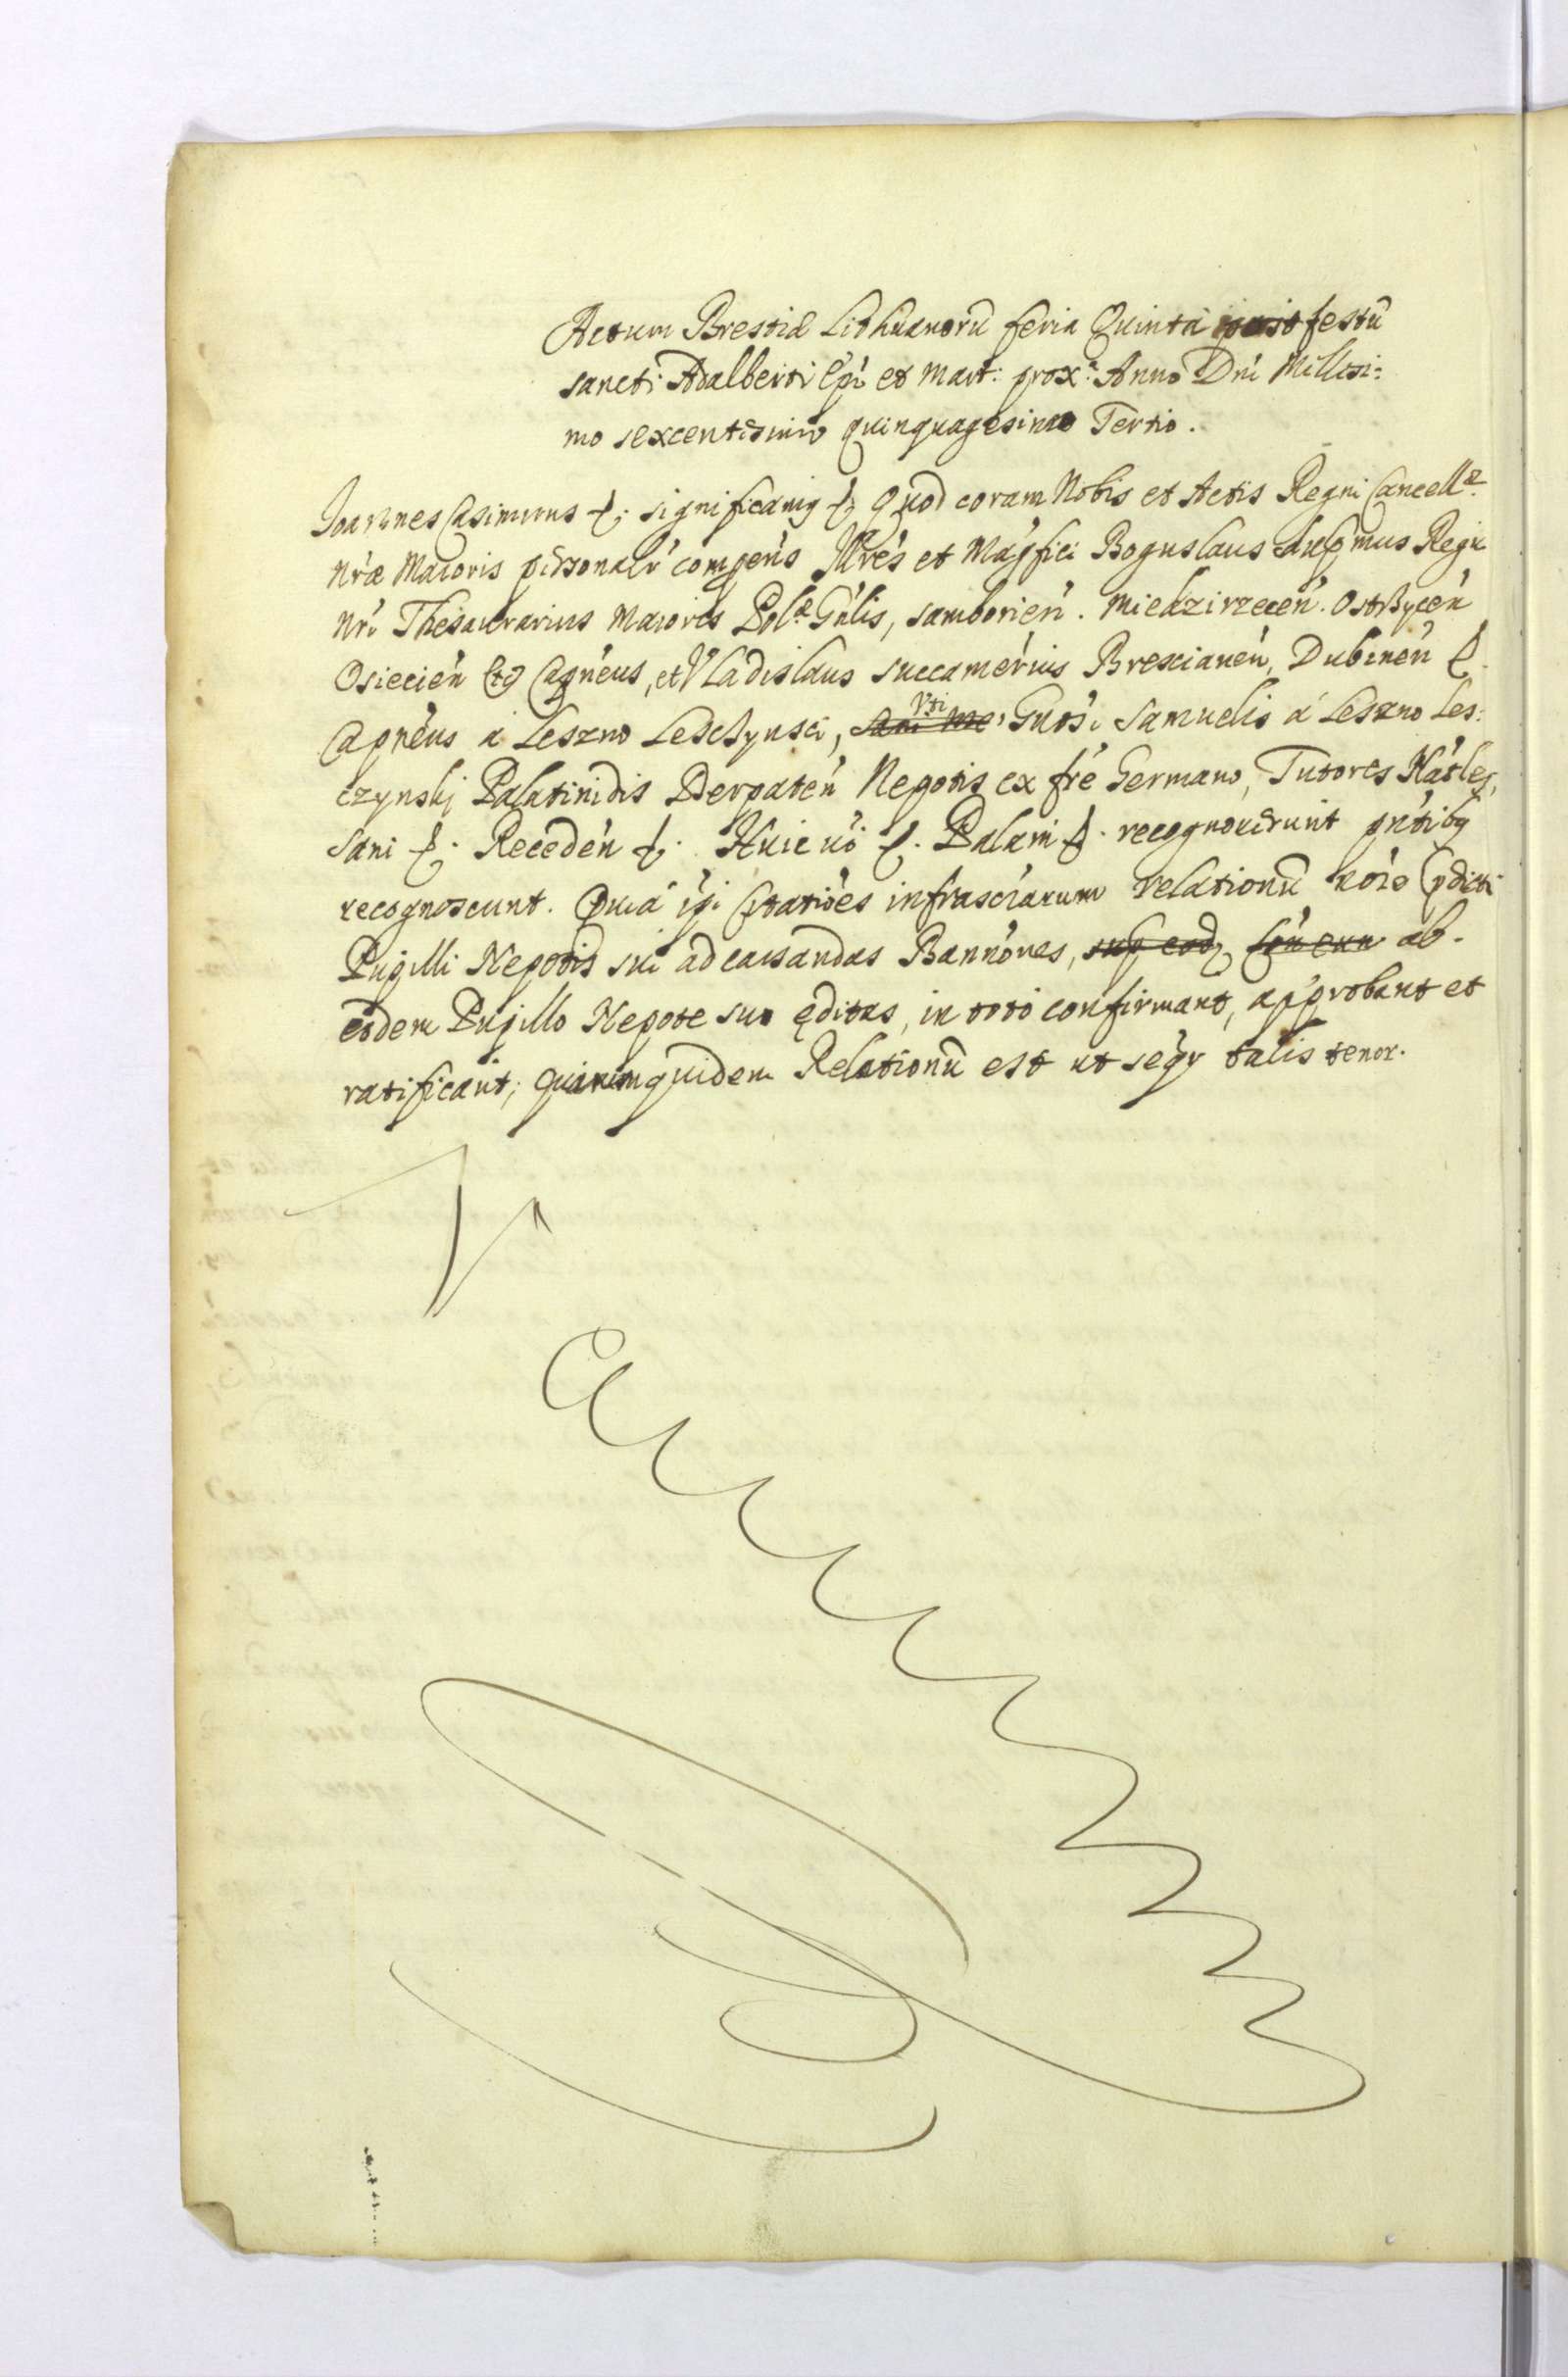 Actum Brestiæ Lithuanorū feria Quinta post festū
sancti Adalberti Ep̃i et Mart: prox: Anno Dn̄i Millesi:
mo sexcentesimo quinquagesimo Tertio.
Joannes Casimirus significamꝰ Quod coram Nobis et Actis Regni Cancellæ
nr̃æ Maioris personalr̃ compeñs Ill̃res et Mag̃fici Boguslaus Regni
nr̃i Thesaurarius Maioris Pol: Gñlis, samborień. Miedzirzeceń. Ostrzyceń
Osiecień etc Capñeus, et Vladislaus succamerius Brescianeń, Dubineń
Capñeus á Leszno Lesczynsci, Vti Gñosi Samuelis á Leszno Les:
czynskj Palatinidis Derpateń Nepotis ex fr̃e Germano, Tutores Nat̃les,
sani Recedeń Huic ṽo Palam recognoverunt pñtibꝰ
recognoscunt. Quia ip̃i Citatiões infrascr̃arum relationū nõie p̃dicti
Pupilli Nepotis sui ad cassandas Banñones, ab
eodem Pupillo Nepote suo ęditas, in toto confirmant, approbant et
ratificant; quarumquidem Relationū est ut seq̃r talis tenor.